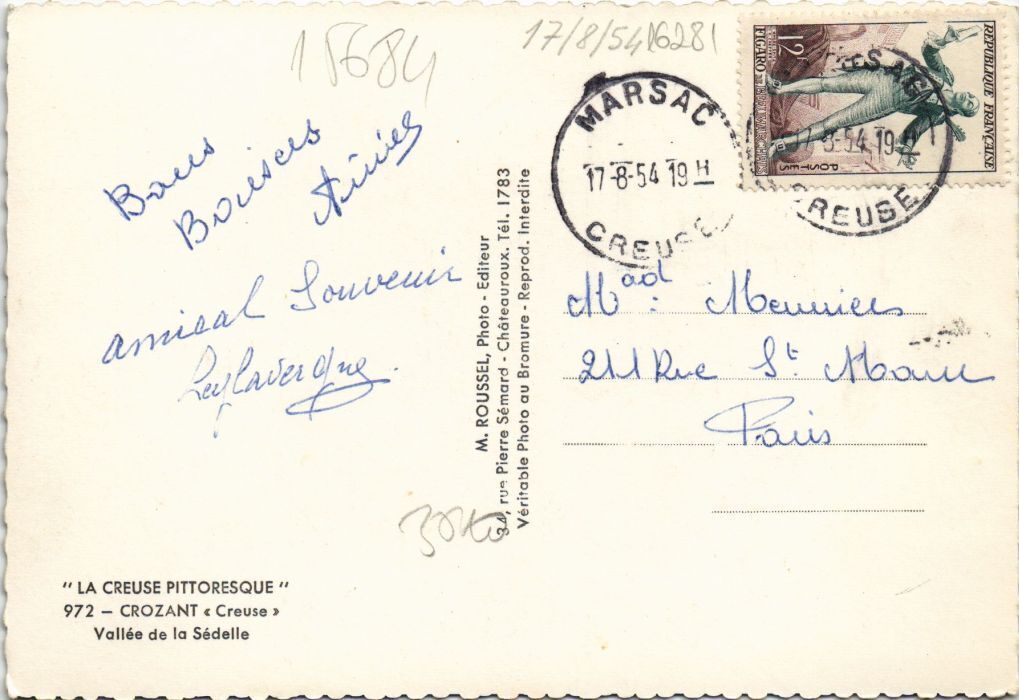 15684
17/8/54
16281
MARSAC
17-8-54 19H
CREUSE
MARSAC
17-8-54 19H
CREUSE
RÉPUBLIQUE FRANÇAISE
12F
FIGARO
POSTES
Bons
Baisers
amical Souvenir
Mad: Meuniers
211 Rue St Maur
Paris
M. ROUSSEL, Photo - Editeur
34, rue Pierre Sémard - Châteauroux. Tél. 1783
Véritable Photo au Bromure - Reprod. Interdite
" LA CREUSE PITTORESQUE "
972 — CROZANT « Creuse »
Vallée de la Sédelle